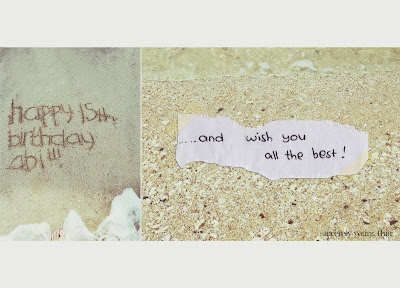 happy 15th
birthday
abi!!!
.....and wish you
all the best!
sincerely yours,